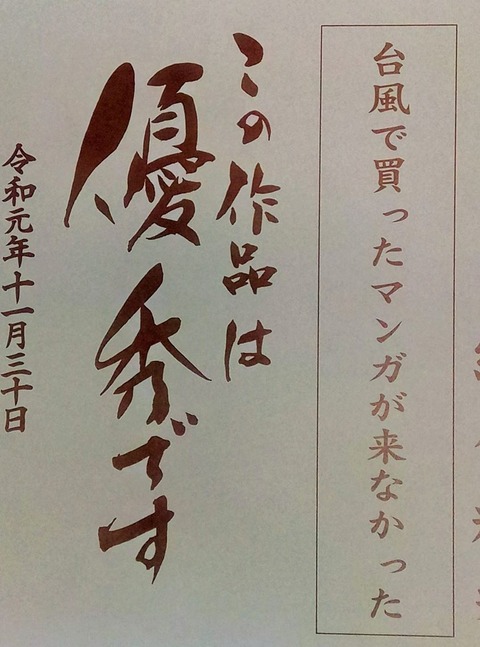 台風で買ったマンガが来なかった
この作品は
優秀です
令和元年十一月三十日